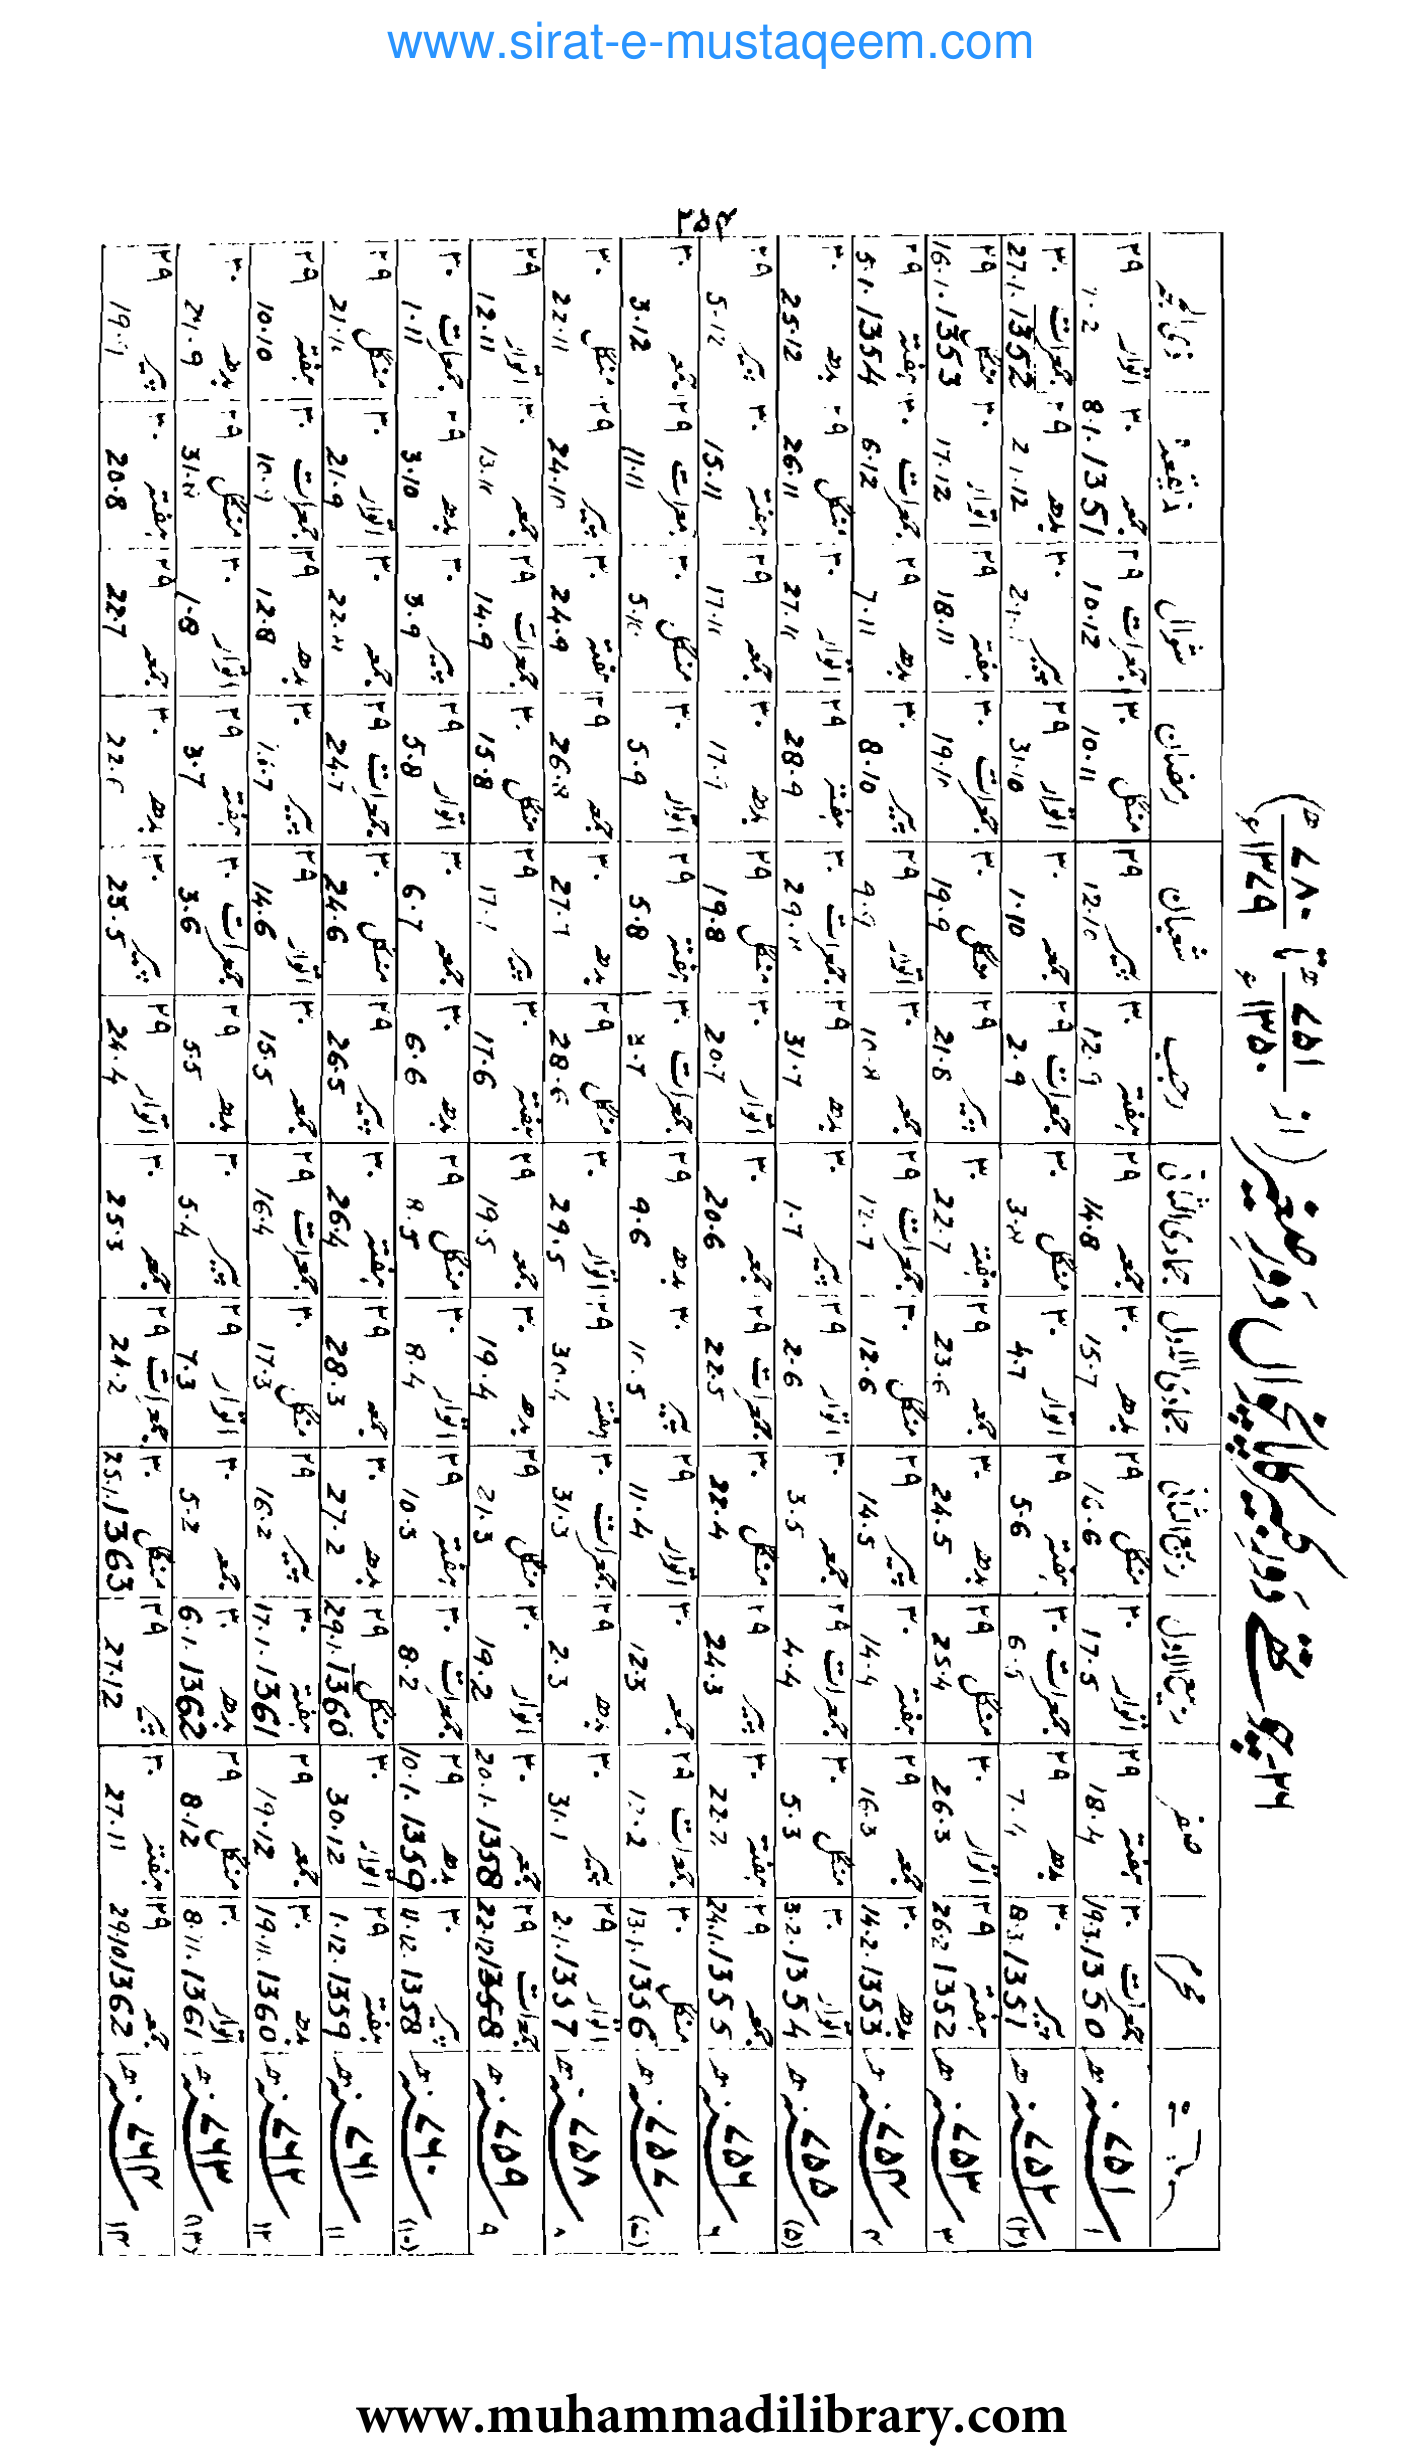 www.sirat-e-mustaqeem.com
۲۵۴
۲۴- چوتھے دَورِ کبیر کا پانچواں دَورِ صغیر (از ۷۵۱ھ ۱۳۵۰ء تا ۷۸۰ھ ۱۳۷۹ء)
محرم صفر ربیع الاول ربیع الثانی جمادی الاول جمادی الثانی رجب شعبان رمضان شوال ذیقعدۃ ذی الحجہ
۱ ۷۵۱ھ جمعرات ۳۰ 19.3.1350 ہفتہ ۲۹ 18.4 اتوار ۳۰ 17.5 منگل ۲۹ 16.6 بدھ ۳۰ 15.7 جمعہ ۲۹ 14.8 ہفتہ ۳۰ 12.9 پیر ۲۹ 12.10 منگل ۳۰ 10.11 جمعرات ۲۹ 10.12 جمعہ ۳۰ 8.1.1351 اتوار ۲۹
(۲) ۷۵۲ھ پیر ۳۰ 8.3.1351 بدھ ۲۹ 7.4 جمعرات ۳۰ 6.5 ہفتہ ۲۹ 5.6 اتوار ۳۰ 4.7 منگل ۳۰ 3.8 جمعرات ۲۹ 2.9 جمعہ ۳۰ 1.10 اتوار ۲۹ 31.10 پیر ۳۰ بدھ ۲۹ جمعرات ۳۰ 27.1.1352
۳ ۷۵۳ھ ہفتہ ۲۹ 26.2.1352 اتوار ۳۰ 26.3 منگل ۲۹ 25.4 بدھ ۳۰ 24.5 جمعہ ۲۹ 23.6 ہفتہ ۳۰ 22.7 پیر ۲۹ 21.8 منگل ۳۰ 19.9 جمعرات ۳۰ 19.10 ہفتہ ۲۹ 18.11 اتوار ۳۰ 17.12 منگل ۲۹ 16.1.1353
۴ ۷۵۴ھ بدھ ۳۰ 14.2.1353 جمعہ ۲۹ 16.3 ہفتہ ۳۰ 14.4 پیر ۲۹ 14.5 منگل ۳۰ 12.6 جمعرات ۲۹ 12.7 جمعہ ۳۰ 10.8 اتوار ۲۹ 9.9 پیر ۳۰ 8.10 بدھ ۲۹ 7.11 جمعرات ۳۰ 6.12 ہفتہ ۲۹ 5.1.1354
(۵) ۷۵۵ھ اتوار ۳۰ 3.2.1354 منگل ۳۰ 5.3 جمعرات ۲۹ 4.4 جمعہ ۳۰ 3.5 اتوار ۲۹ 2.6 پیر ۳۰ 1.7 بدھ ۲۹ 31.7 جمعرات ۳۰ 29.8 ہفتہ ۲۹ 28.9 اتوار ۳۰ 27.10 منگل ۲۹ 26.11 بدھ ۳۰ 25.12
۶ ۷۵۶ھ جمعہ ۲۹ 24.1.1355 ہفتہ ۳۰ 22.2 پیر ۲۹ 24.3 منگل ۳۰ 22.4 جمعرات ۲۹ 22.5 جمعہ ۳۰ 20.6 اتوار ۳۰ 20.7 منگل ۲۹ 19.8 بدھ ۳۰ 17.9 جمعہ ۲۹ 17.10 ہفتہ ۳۰ 15.11 پیر ۲۹
(۷) ۷۵۷ھ منگل ۳۰ 13.1.1356 جمعرات ۲۹ 12.2 جمعہ ۳۰ 12.3 اتوار ۲۹ 11.4 پیر ۳۰ 10.5 بدھ ۲۹ 9.6 جمعرات ۳۰ ہفتہ ۲۹ 5.8 اتوار ۳۰ 5.9 منگل ۳۰ 5.10 جمعرات ۲۹ 11.11 جمعہ ۳۰ 3.12
۸ ۷۵۸ھ اتوار ۲۹ 2.1.1357 پیر ۳۰ 31.1 بدھ ۲۹ 2.3 جمعرات ۳۰ 31.3 ہفتہ ۲۹ 30.4 اتوار ۳۰ 29.5 منگل ۲۹ 28.6 بدھ ۳۰ 27.7 جمعہ ۲۹ 26.8 ہفتہ ۳۰ 24.9 پیر ۲۹ 24.10 منگل ۳۰ 22.11
۹ ۷۵۹ھ جمعرات ۲۹ 22.12.1358 جمعہ ۳۰ 20.1.1358 اتوار ۳۰ 19.2 منگل ۲۹ 21.3 بدھ ۳۰ 19.4 جمعہ ۲۹ 19.5 ہفتہ ۳۰ 17.6 پیر ۲۹ 17.7 منگل ۳۰ 15.8 جمعرات ۲۹ 14.9 جمعہ ۳۰ 13.10 اتوار ۲۹ 12.11
(۱۰) ۷۶۰ھ پیر ۳۰ 11.12.1358 بدھ ۲۹ 10.1.1359 جمعرات ۳۰ 8.2 ہفتہ ۲۹ 10.3 اتوار ۳۰ 8.4 منگل ۲۹ 8.5 بدھ ۳۰ 6.6 جمعہ ۳۰ 6.7 اتوار ۲۹ 5.8 پیر ۳۰ 3.9 بدھ ۲۹ 3.10 جمعرات ۳۰ 1.11
۱۱ ۷۶۱ھ ہفتہ ۲۹ 1.12.1359 اتوار ۳۰ 30.12 منگل ۲۹ 29.1.1360 بدھ ۳۰ 27.2 جمعہ ۲۹ 28.3 ہفتہ ۳۰ 26.4 پیر ۲۹ 26.5 منگل ۳۰ 24.6 جمعرات ۲۹ 24.7 جمعہ ۳۰ 22.8 اتوار ۳۰ 21.9 منگل ۲۹ 21.10
۱۲ ۷۶۲ھ بدھ ۳۰ 19.11.1360 جمعہ ۲۹ 19.12 ہفتہ ۳۰ 17.1.1361 پیر ۲۹ 16.2 منگل ۳۰ 17.3 جمعرات ۲۹ 16.4 جمعہ ۳۰ 15.5 اتوار ۲۹ 14.6 پیر ۳۰ بدھ ۲۹ 12.8 جمعرات ۳۰ 10.9 ہفتہ ۲۹ 10.10
(۱۳) ۷۶۳ھ اتوار ۳۰ 8.11.1361 منگل ۲۹ 8.12 بدھ ۳۰ 6.1.1362 جمعہ ۳۰ 5.2 اتوار ۲۹ 7.3 پیر ۳۰ 5.4 بدھ ۲۹ 5.5 جمعرات ۳۰ 3.6 ہفتہ ۲۹ 3.7 اتوار ۳۰ 1.8 منگل ۲۹ 31.8 بدھ ۳۰
۱۴ ۷۶۴ھ جمعہ ۲۹ 29.10.1362 ہفتہ ۳۰ 27.11 پیر ۲۹ 27.12 منگل ۳۰ 25.1.1363 جمعرات ۲۹ 24.2 جمعہ ۳۰ 25.3 اتوار ۲۹ 24.4 پیر ۳۰ 23.5 بدھ ۳۰ 22.6 جمعہ ۲۹ 22.7 ہفتہ ۳۰ 20.8 پیر ۲۹ 19.9
www.muhammadilibrary.com